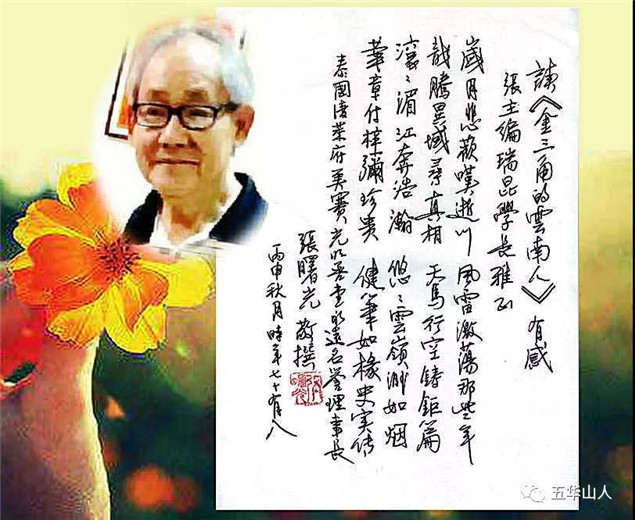 讀《金三角的雲南人》有感
張主編瑞昆學長雅正
歲月悲歡嘆逝川 風雷激蕩那些年
騰異域尋真相 天馬行空鑄鉅篇
滾〻湄江奔浩瀚 悠〻雲嶺渺如烟
華章付梓彌珍貴 健筆如椽史实传
泰國清萊府美賽光明善堂永遠名誉理事長
張曙光 敬撰
丙申秋月時年七十有八
五华山人